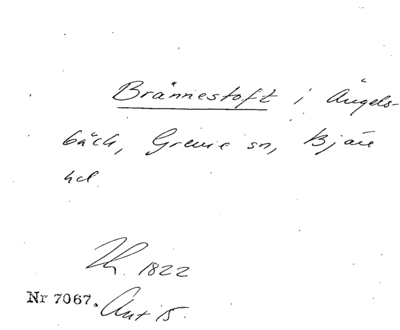 Brännestoft i Ängels-
bäck, Grevie sn, Bjäre
hd.
Th. 1822
Nr 7067. Ant 15.